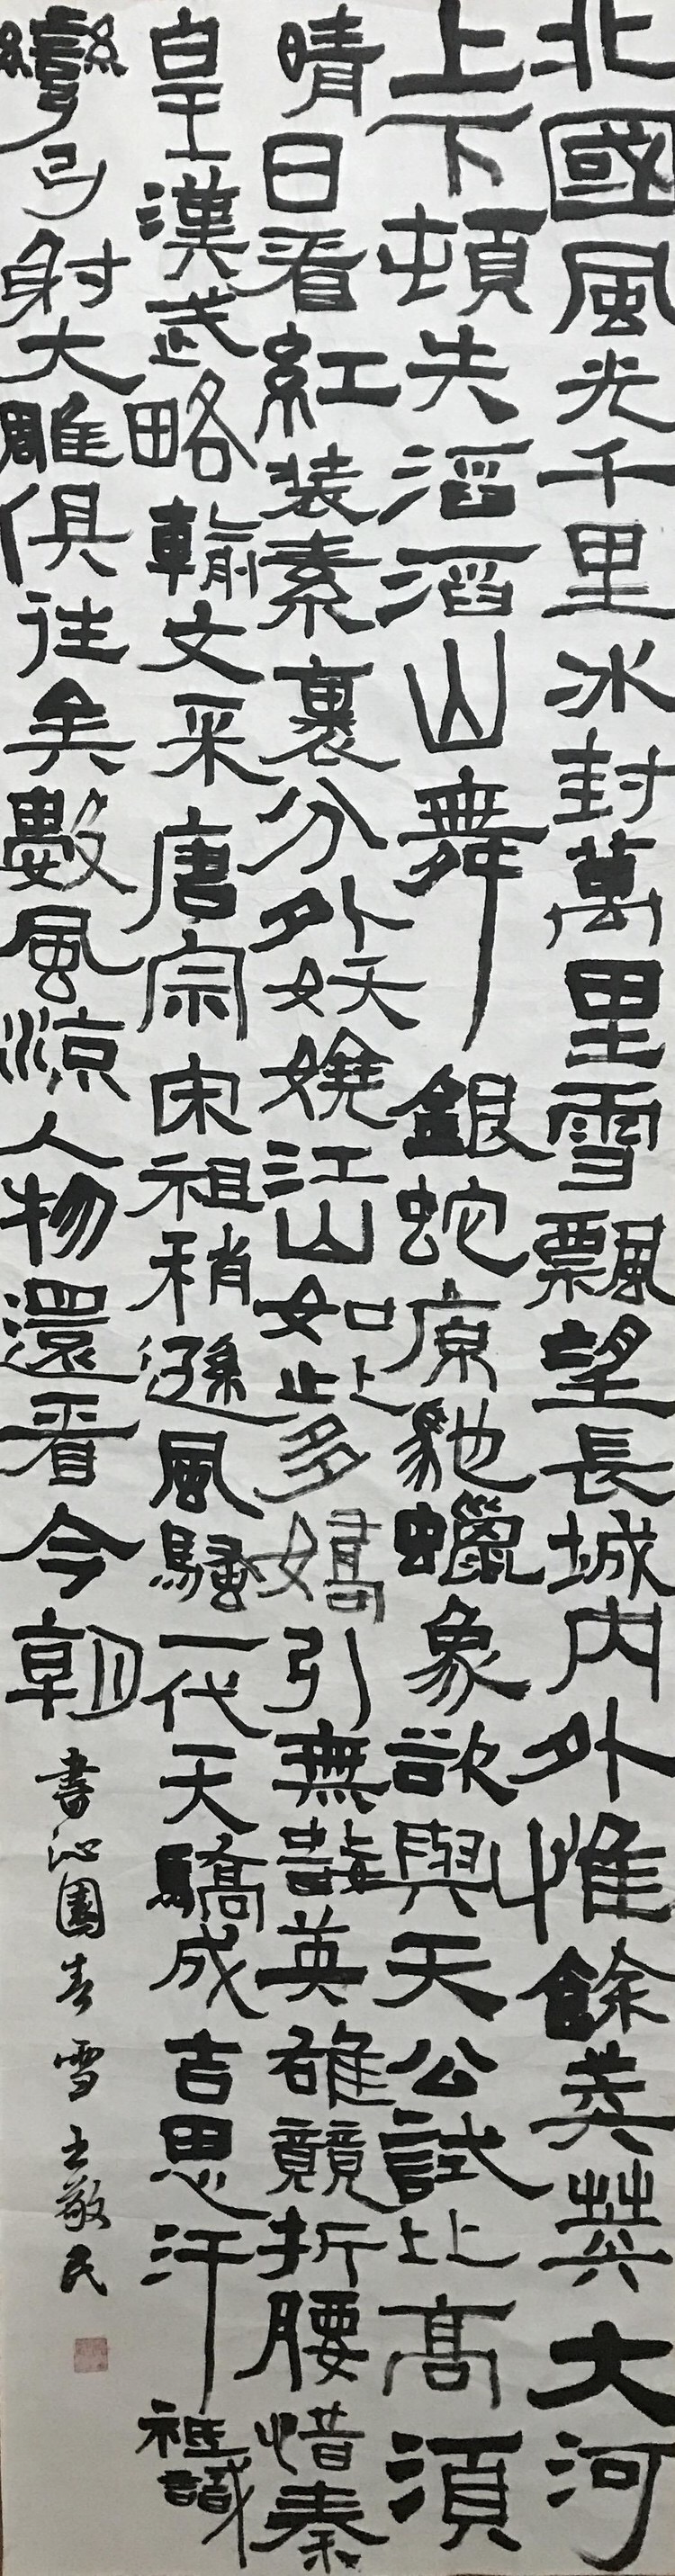 北國風光千里冰封萬里雪飄望長城內外惟餘莽莽大河
上下頓失滔滔山舞銀蛇原馳蠟象欲與天公試比高須
晴日看紅装素裹分外妖嬈江山如此多嬌引無數英雄競折腰惜秦
皇漢武略輸文采唐宗宋祖稍遜風騷一代天驕成吉思汗祗識
彎弓射大雕俱往矣數風流人物還看今朝
書沁園春雪王敬民